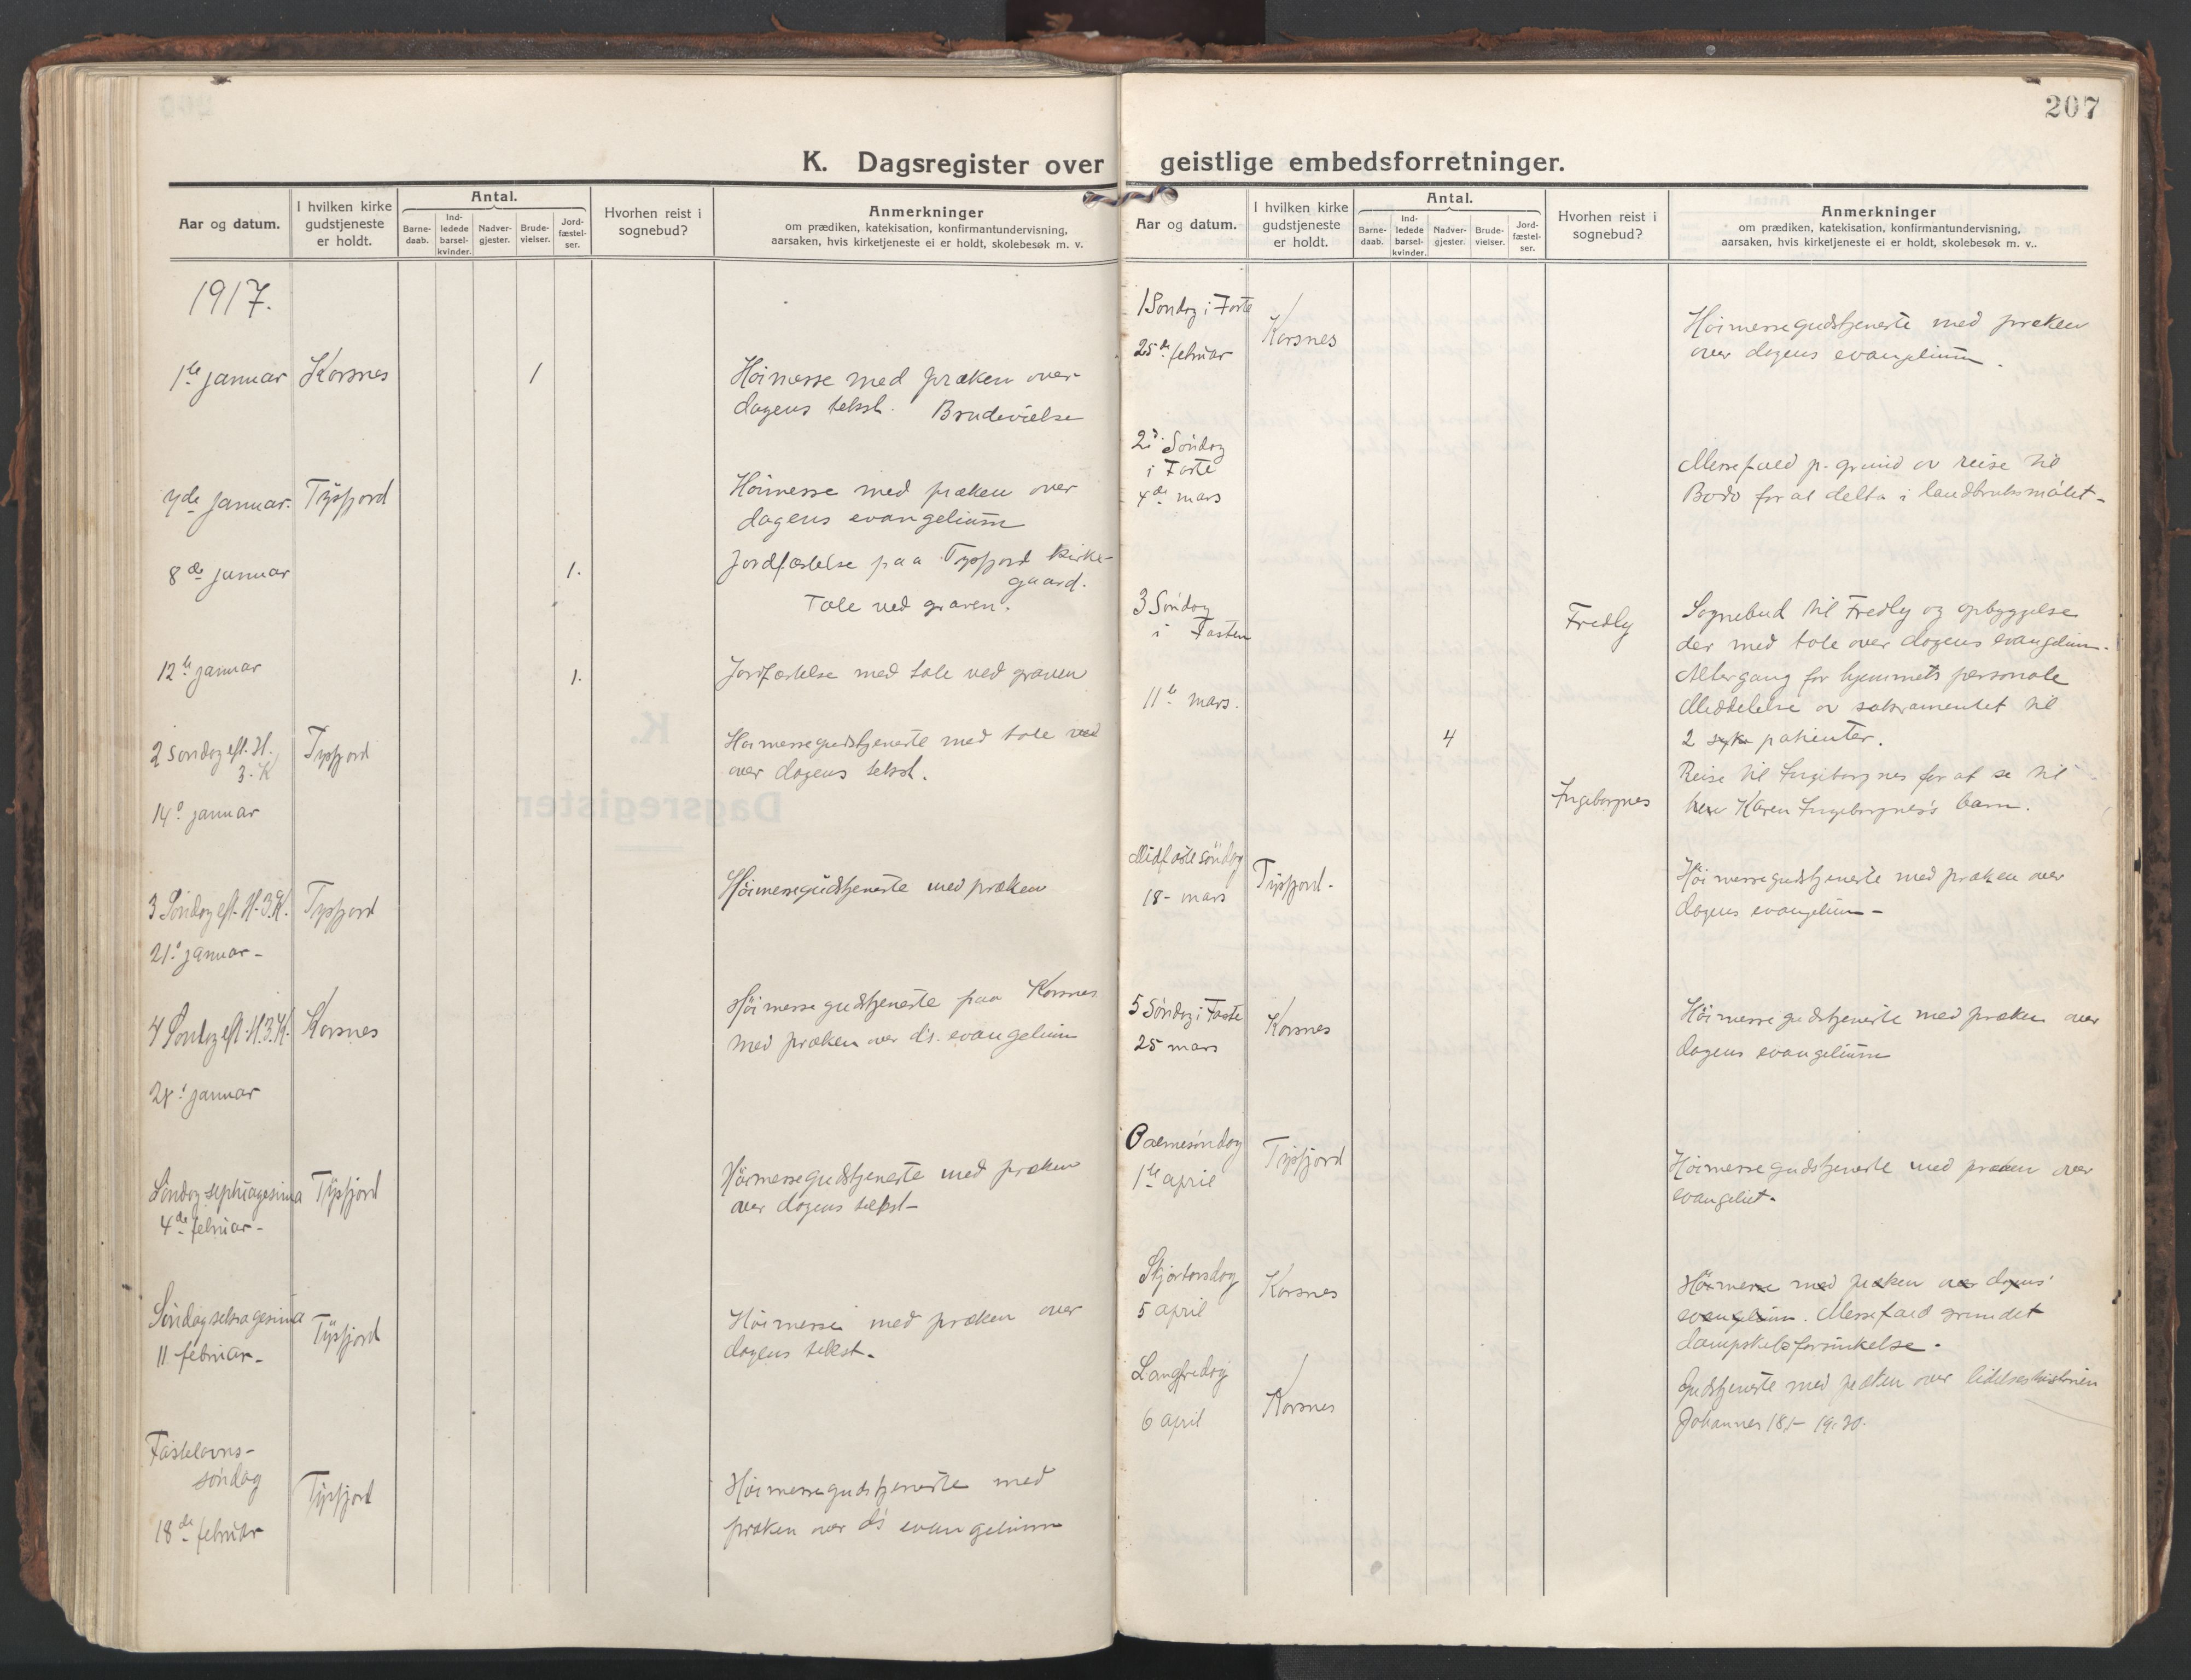 207
K. Dagsregister over geistlige embedsforretninger.
Aar og datum.
I hvilken kirke gudstjeneste er holdt.
Antal.
Barne-daab.
Ind-ledede barsel-kvinder.
Nadver-gjester.
Brude-vielser.
Jord-fæstel-ser.
Hvorhen reist i sognebud?
Anmerkninger
om prædiken, katekisation, konfirmantundervisning,
aarsaken, hvis kirketjeneste ei er holdt, skolebesøk m. v.
1917.
1te januar Korsnes 1 Høimesse med præken over
dagens tekst. Brudevielse
7de januar. Tysfjord Høimesse med præken over
dagens evangelium
8de januar 1. Jordfæstelse paa Tysfjord kirke-
gaard.
Tale ved graven.
12te januar 1. Jordfæstelse med tale ved graven
2 søndag eft. H. Tysfjord Høimessegudstjeneste med tale
3. K over dagens tekst.
14de januar
3 Søndag eft. H. 3. K. Tysfjord Høimessegudstjeneste med præken
21de januar -
4 Søndag eft. H. 3. K. Korsnes Høimessegudstjeneste paa Korsnes
med præken over ds. evangelium
28de januar
Søndag septuagesima Tysfjord Høimessegudstjeneste med præken
4de februar - over dagens tekst -
Søndag seksagesima Tysfjord Høimesse med præken over
11 februar - dagens tekst -
Fastelavns-
søndag Tysfjord Høimessegudstjeneste med
18de februar præken over ds evangelium
Aar og datum.
I hvilken kirke gudstjeneste er holdt.
Antal.
Barne-daab.
Ind-ledede barsel-kvinder.
Nadver-gjester.
Brude-vielser.
Jord-fæstel-ser.
Hvorhen reist i sognebud?
Anmerkninger
om prædiken, katekisation, konfirmantundervisning,
aarsaken, hvis kirketjeneste ei er holdt, skolebesøk m. v..
1 Søndag i Faste Korsnes Høimessegudstjeneste med præken
25de februar over dagens evangelium.
2d Søndag
i Faste Messefald p. grund av reise til
4de mars Bodø for at delta i landbruksmøtet -
3 Søndag Fredly Sognebud til Fredly og opbyggelse
i Fasten der med tale over dagens evangelium.
Altergang for hjemmets personale
11te mars. Meddelelse av sakramentet til
4 2 syke patienter.
Reise til Ingeborgnes for at se til
Ingeborgnes Karen Ingeborgnes's barn.
Midfastesøndag Tysfjord - Høimessegudstjeneste med præken over
18 - mars dagens evangelium -
5 Søndag i Faste Korsnes Høimessegudstjeneste med præken over
25 mars dagens evangelium
Palmesøndag Tysfjord Høimessegudstjeneste med præken over
1te april evangeliet -
Skjærtorsdag Korsnes Høimesse med præken over dagens
5 april evangelium. Messefald grundet
dampskibsforsinkelse.
Langfredag Korsnes Gudstjeneste med præken over lidelseshistorien
6 april Johannes 18,1 - 19:30.